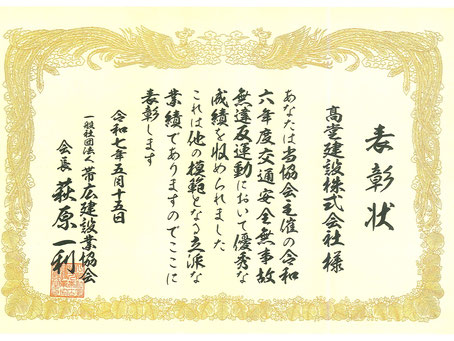 表彰状
高堂建設株式会社様
あなたは当協会主催の令和
六年度交通安全無事故
無違反運動において優秀な
成績を収められました
これは他の模範となる立派な
業績でありますのでここに
表彰します
令和七年五月十五日
一般社団法人帯広建設業協会
会長 萩原一利